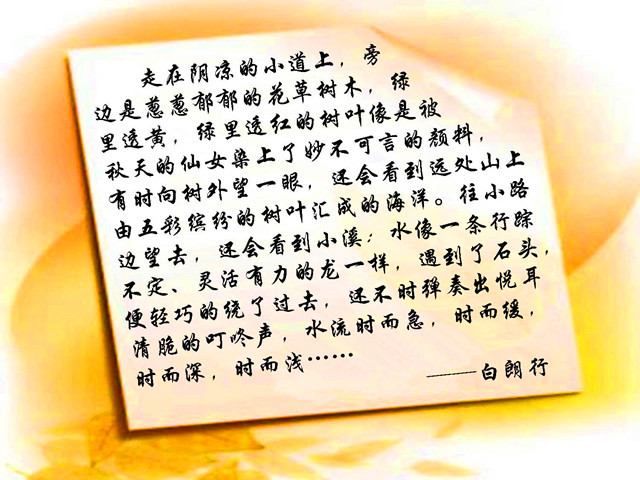 走在阴凉的小道上，旁
边是葱葱郁郁的花草树木，绿
里透黄，绿里透红的树叶像是被
秋天的仙女染上了妙不可言的颜料，
有时向树外望一眼，还会看到远处山上
由五彩缤纷的树叶汇成的海洋。往小路
边望去，还会看到小溪：水像一条行踪
不定、灵活有力的龙一样，遇到了石头，
便轻巧的绕了过去，还不时弹奏出悦耳
清脆的叮咚声，水流时而急，时而缓，
时而深，时而浅……
——白朗行